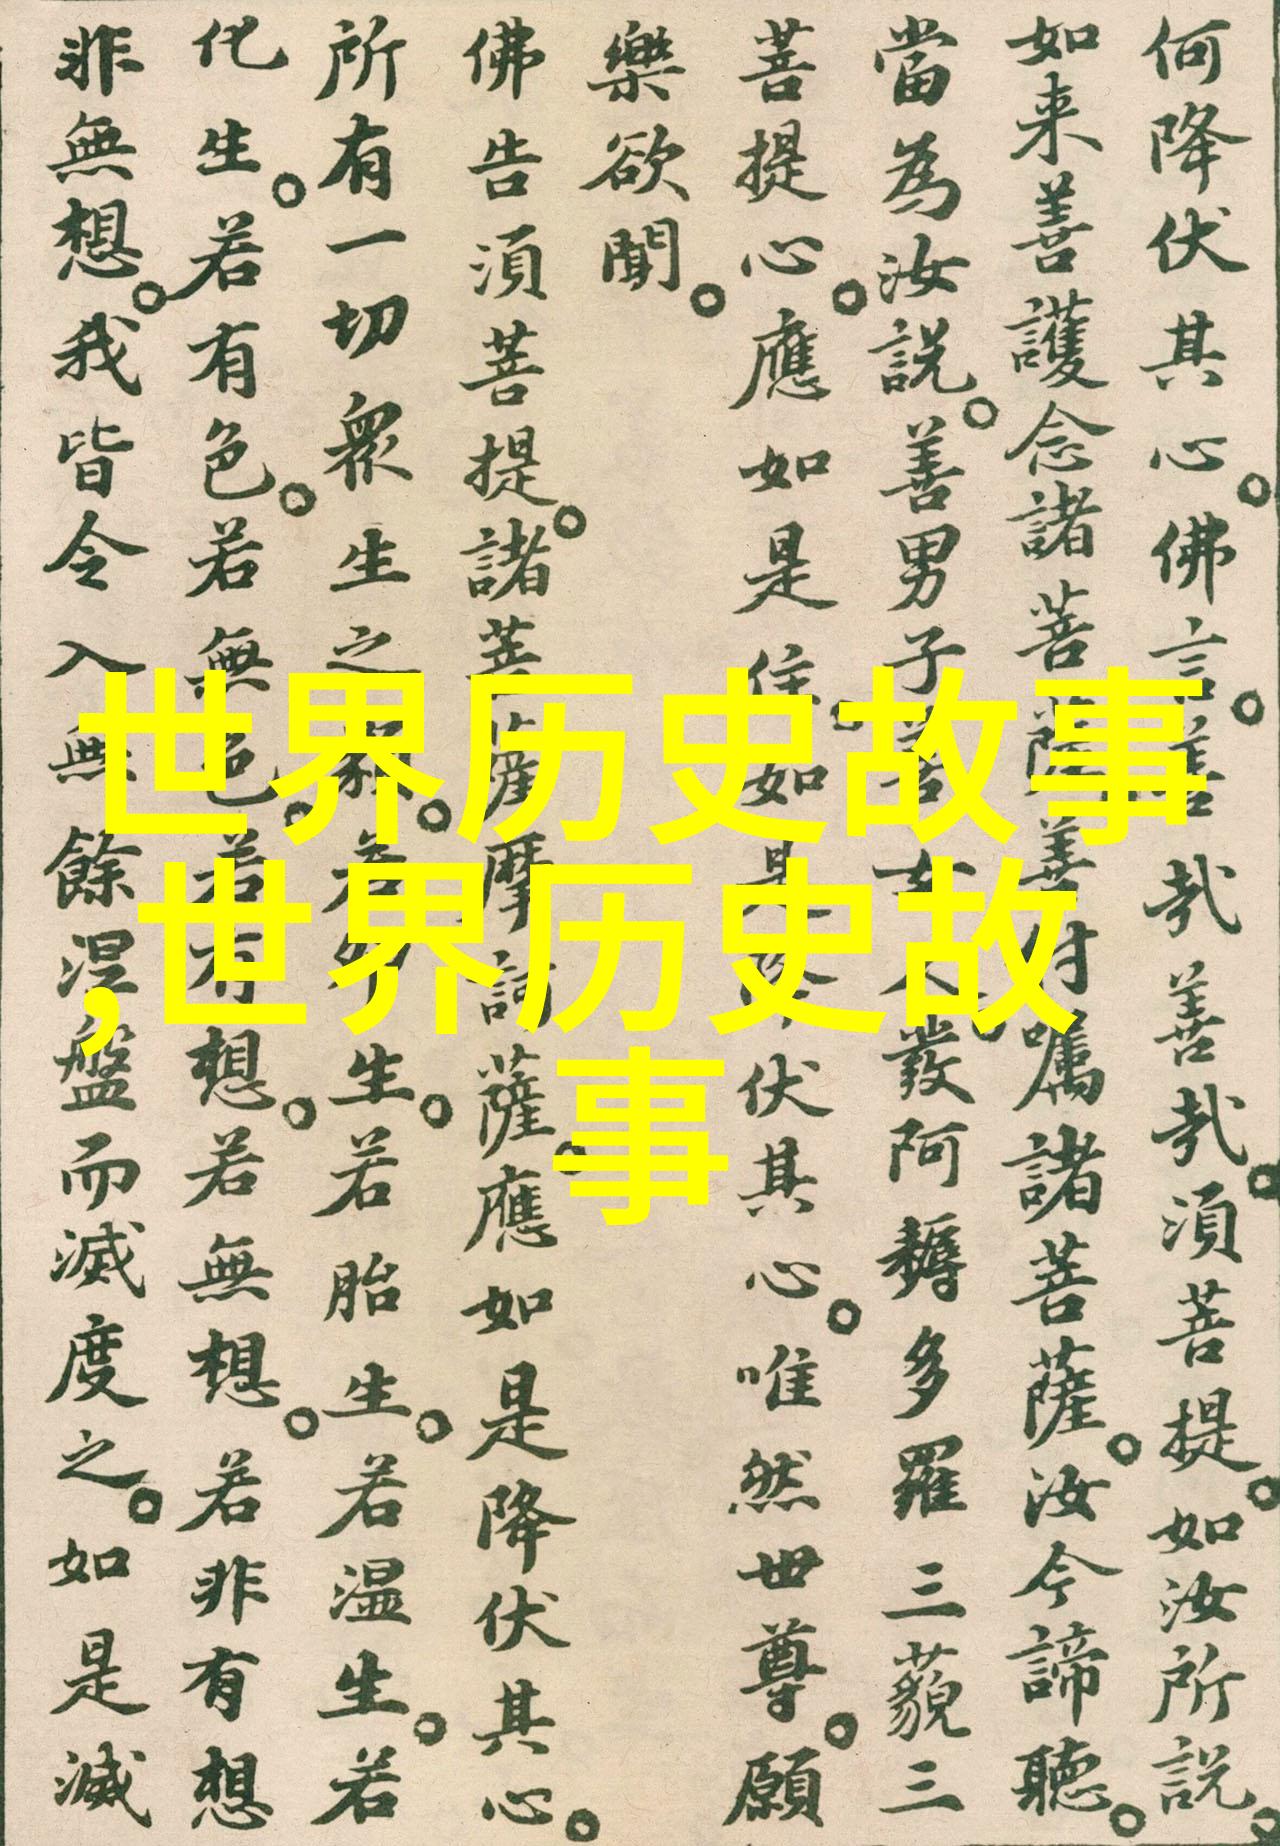 何降伏其心佛言善哉善哉須菩提如汝所説
如来善護念諸菩薩善付嘱諸菩薩汝今諦聽
當為汝説善男子善女人發阿耨多羅三藐三
菩提心應如是住如是降伏其心唯然世尊願
樂欲聞
佛告須菩提諸菩薩摩訶薩應如是降伏其心
所有一切衆生之類若卵生若胎生若温生若
化生若有色若無色若有想若無想若非有想
非無想我皆令入無餘涅盤而滅度之如是滅
世界历史故事
,世界历史故
事